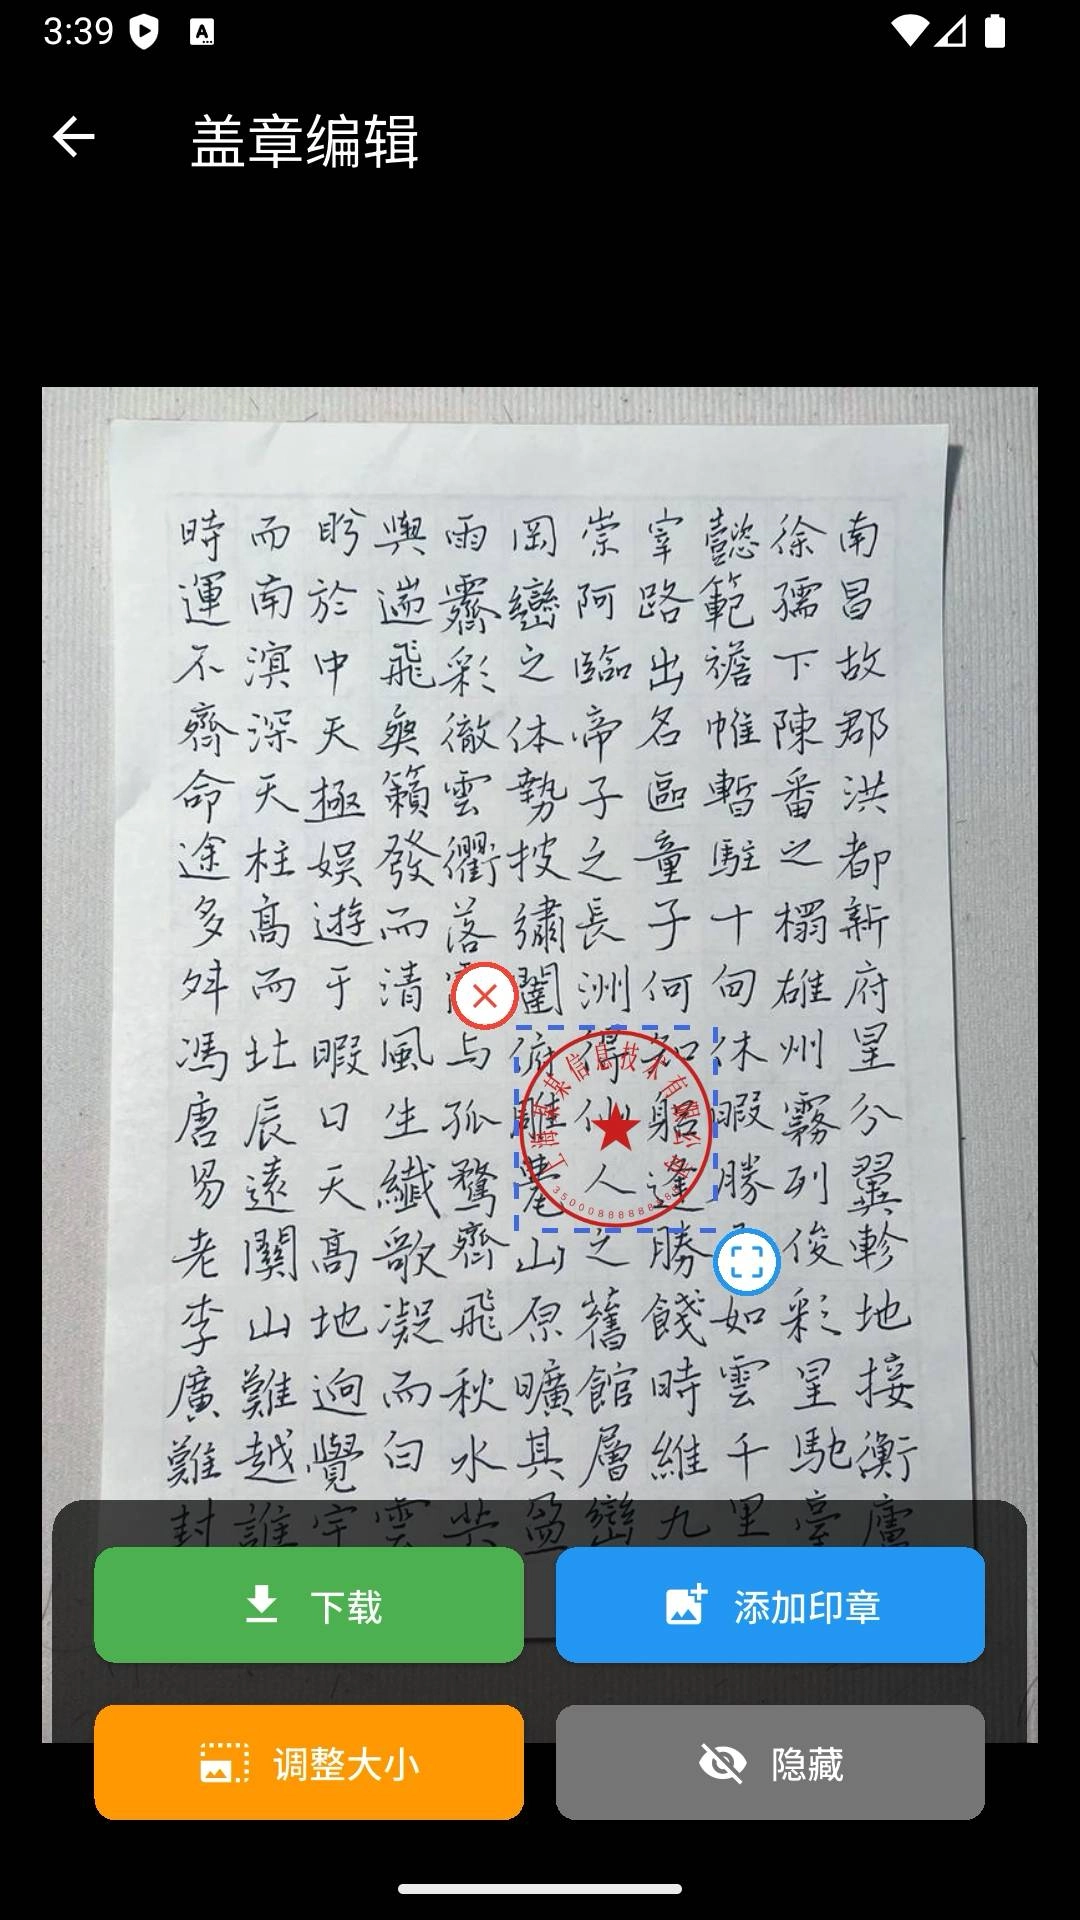 3:39
盖章编辑
南昌故郡洪都新府星分翼軫地接衡廬
徐孺下陳番之榻雄州霧列俊彩星馳臺
懿範襜帷暫駐十旬休暇勝如雲千里
宰路出名區童子何知躬逢勝餞時維九
崇阿臨帝子之長洲得仙人之舊館層巒
岡巒之体勢披繡闥俯雕甍山原曠其盈
雨霽彩徹雲衢落与孤鶩齊飛秋水共
與遄飛爽籟發而清風生纖歌凝而白雲
盻於中天極娛遊于暇日天高地迥覺宇
而南溟深天柱高而北辰遠關山難越誰
時運不齊命途多舛馮唐易老李廣難封
上海某某信息技术有限公司
下载
添加印章
调整大小
隐藏